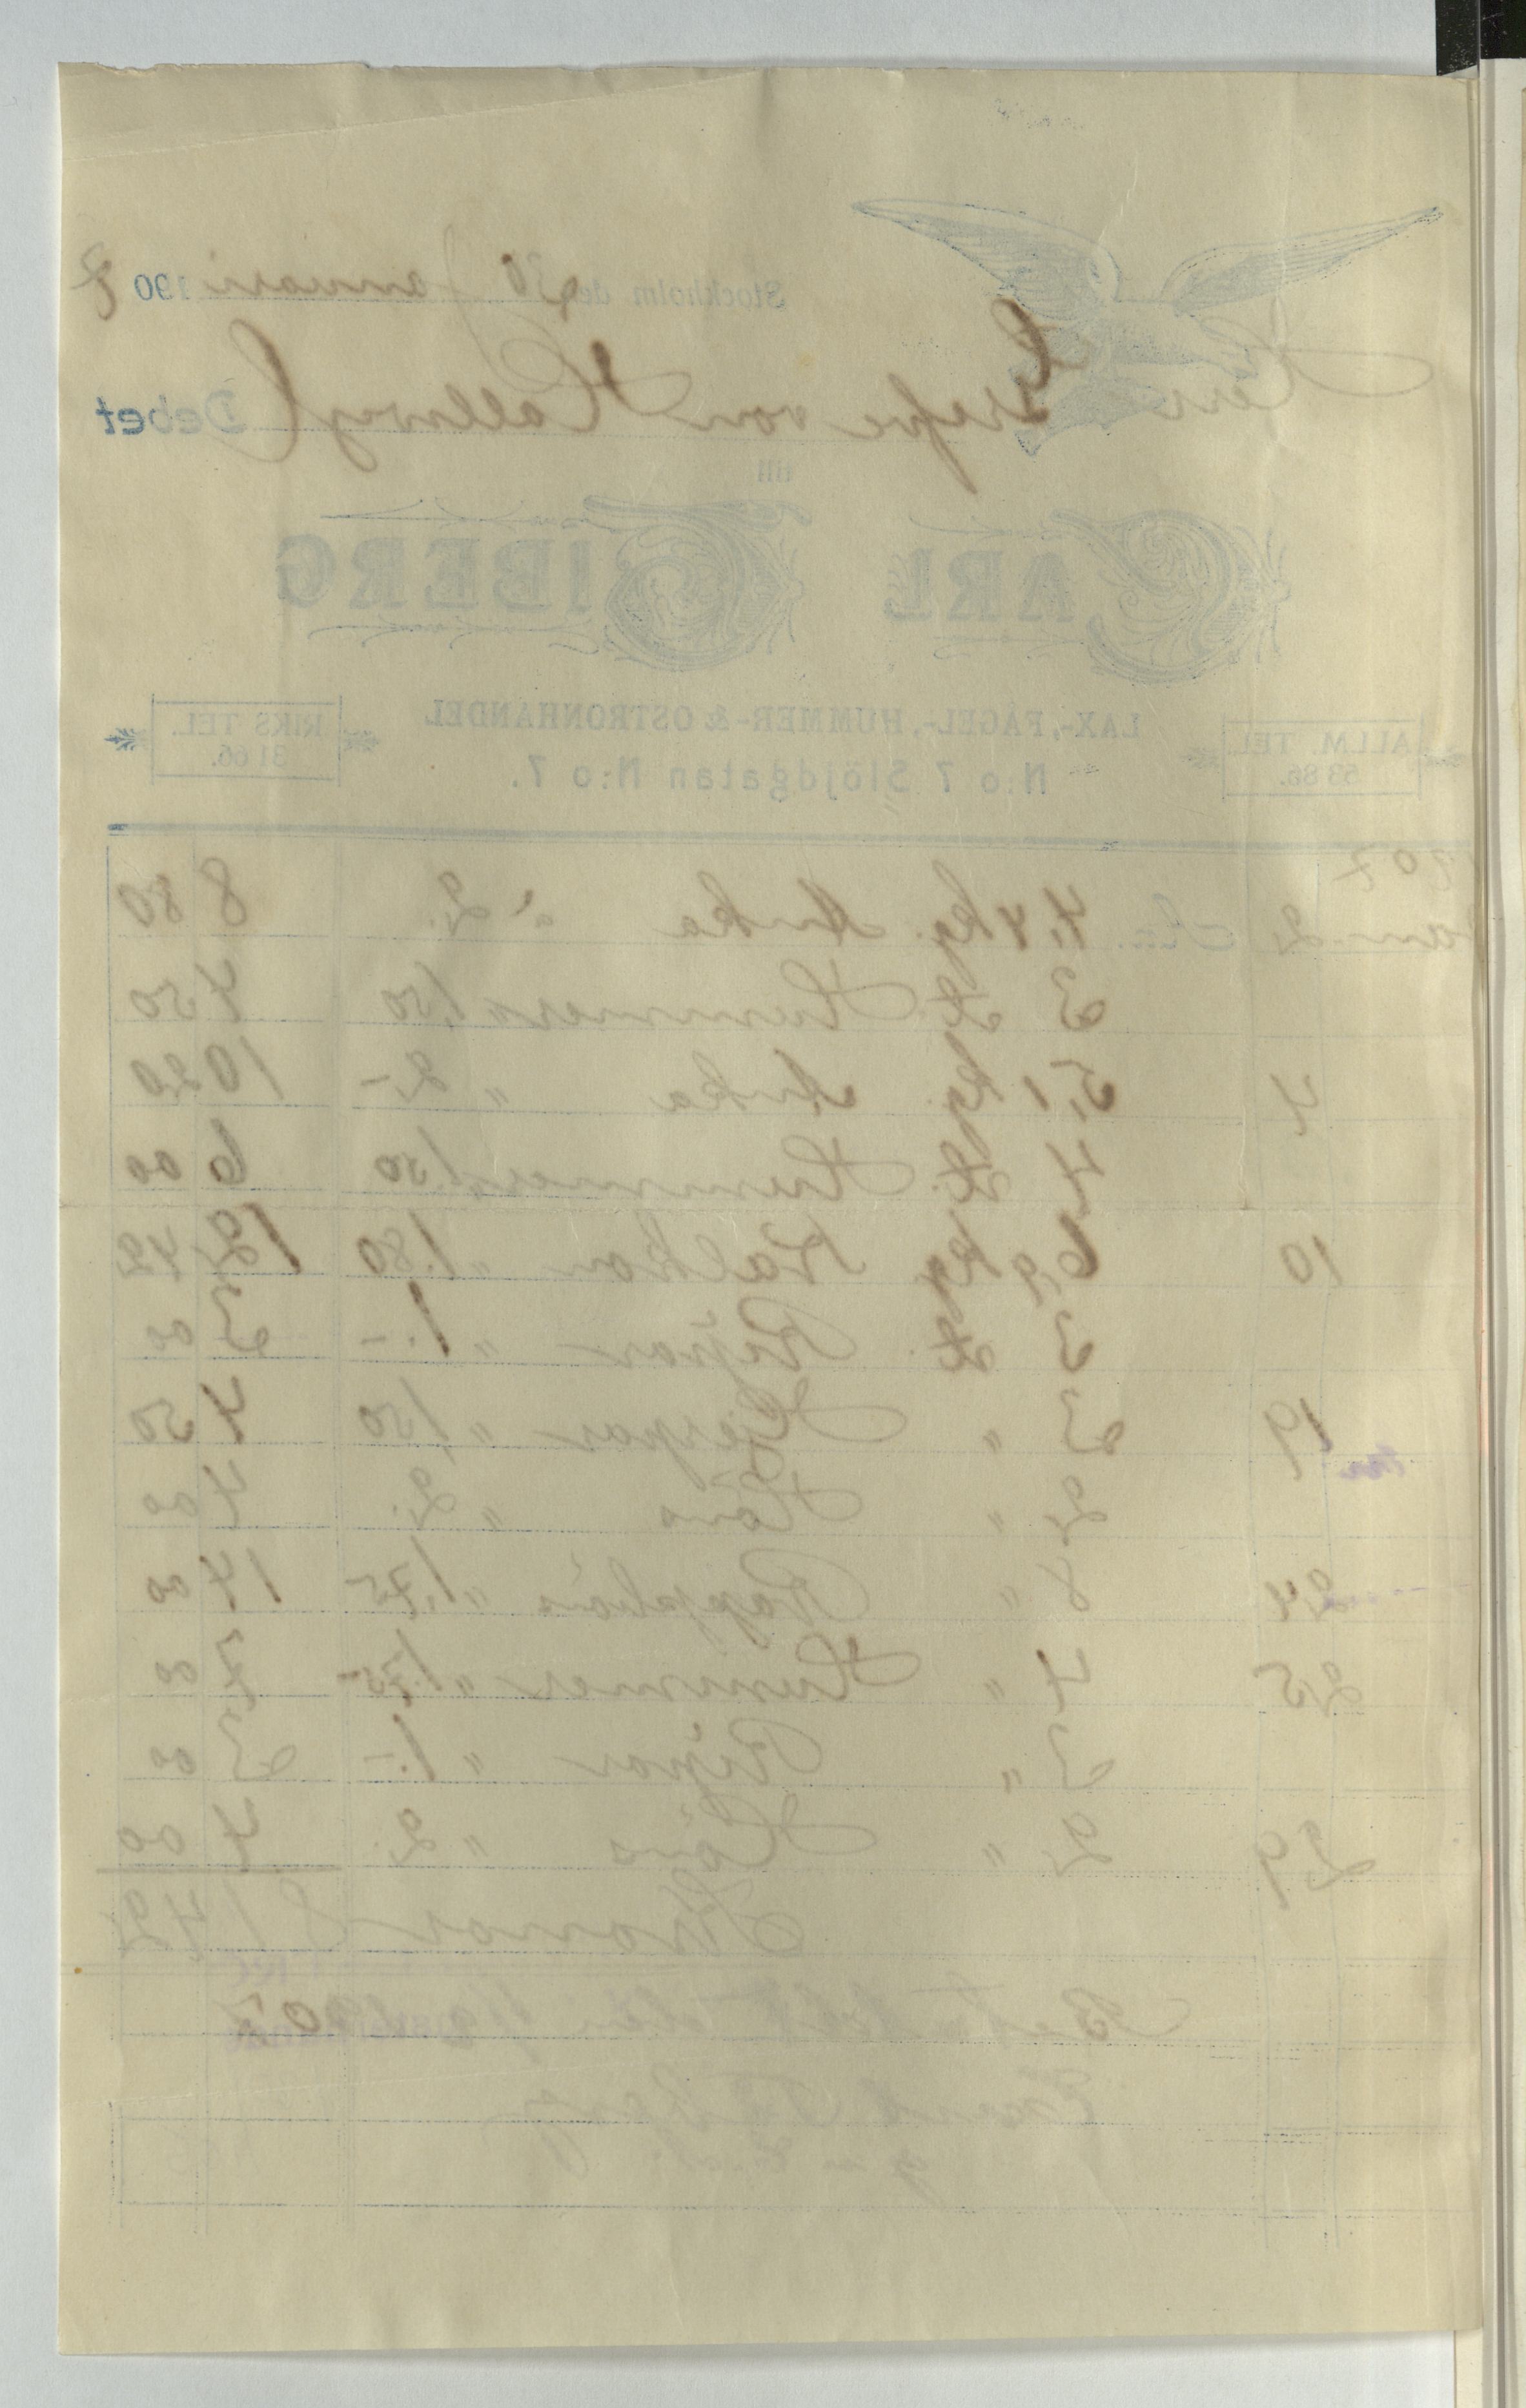 Stockholm den 30 Januari 1907
Herr Grefve von Hallwyl Debet
till
CARL TIBERG
LAX-, FÅGEL-, HUMMER- & OSTRONHANDEL
N:o 7 Slöjdgatan N:o 7.
ALLM. TEL. 53 86.
RIKS TEL. 31 66.
1907
Jan. 2 4,4 kg. Anka à 2. 8 80
3 st. Hummer " 1,50 4 50
4 5,1 kg. Anka " 2.- 10 20
4 st. Hummer " 1.50 6 00
10 6,9 kg. Kalkon " 1.80 12 42
3 st. Ripor " 1.- 3 00
19 3 " Hjerpar " 1,50 4 50
2 " Höns " 2. 4 00
24 8 " Rapphöns " 1,75 14 00
25 4 " Hummer " 1.75 7 00
3 " Ripor " 1.- 3 00
29 2 " Höns " 2. 4 00
Kronor 81 42